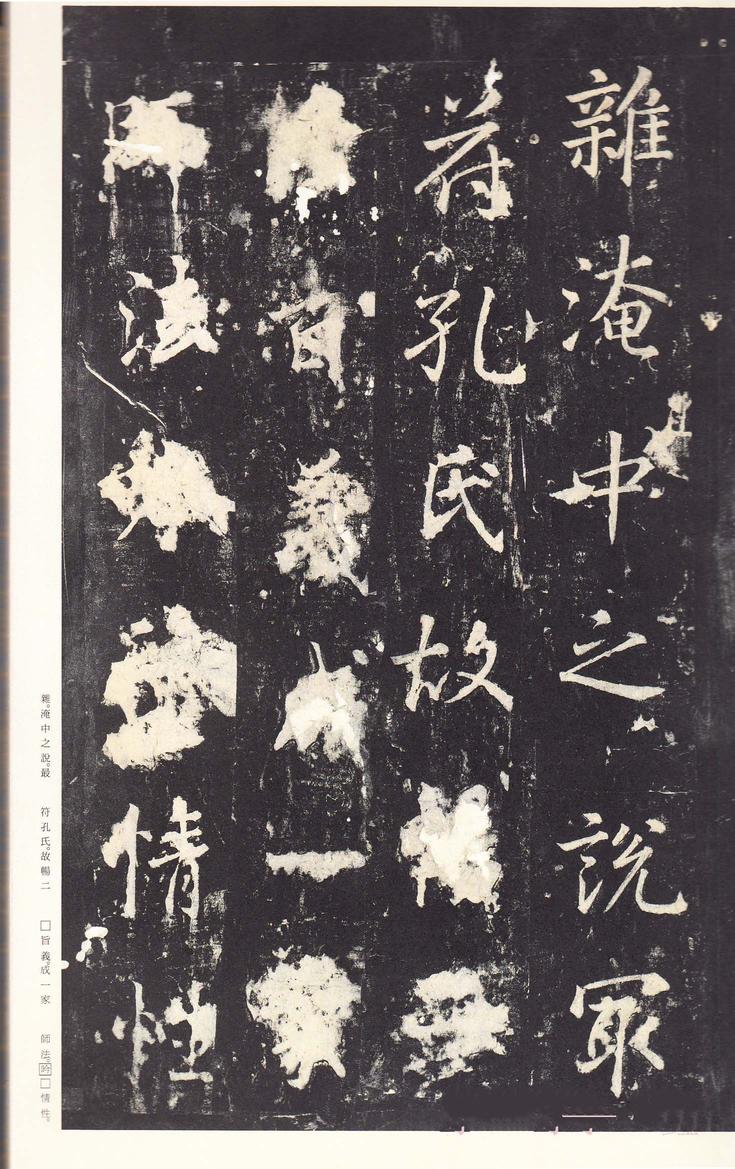 雜淹中之說冣
符孔氏故暢二
旨義成一家
師法情性
雜。淹中之說。最　符孔氏。故暢二　□旨義。成一家　師法。吟□情性。